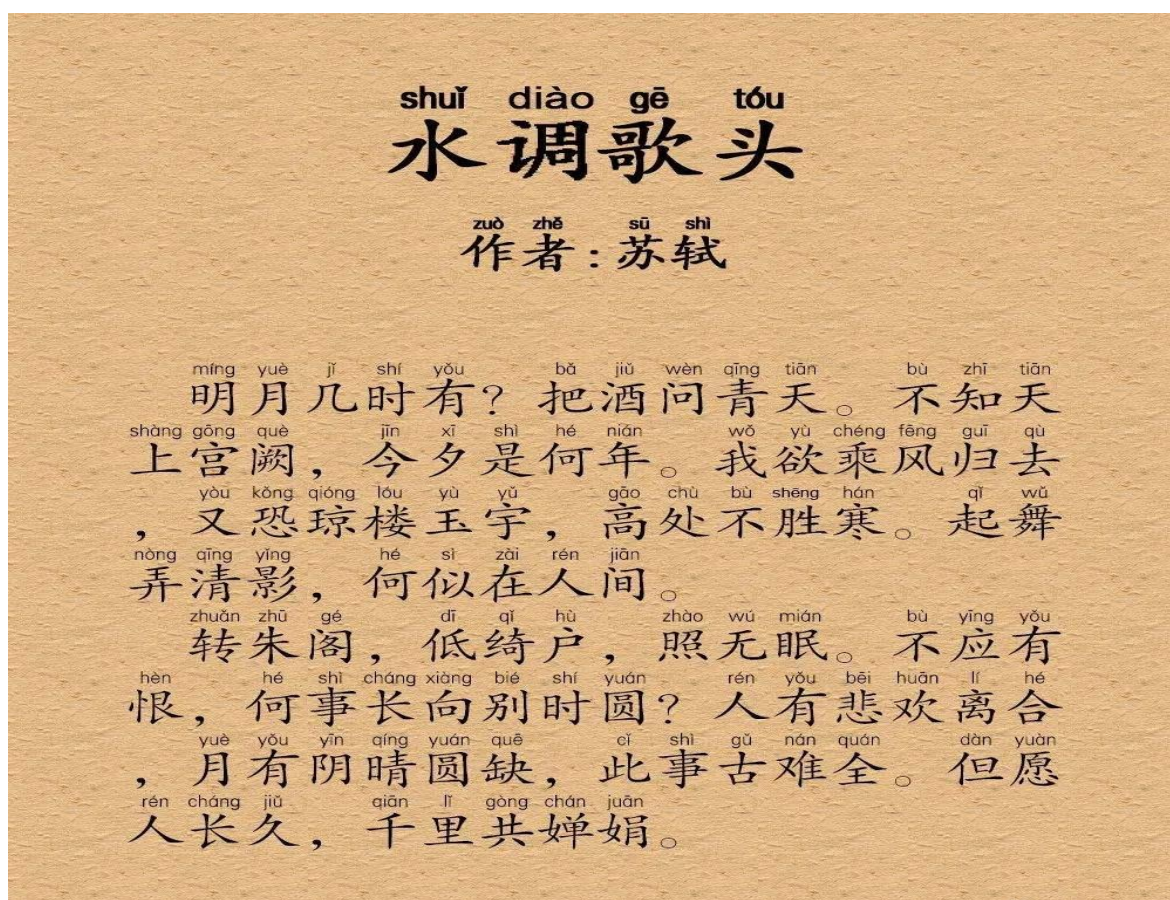 shuǐ diào gē tóu
水调歌头
zuò zhě sū shì
作者:苏轼
míng yuè jǐ shí yǒu bǎ jiǔ wèn qīng tiān bù zhī tiān
明月几时有?把酒问青天。不知天
shàng gōng què jīn xī shì hé nián wǒ yù chéng fēng guī qù
上宫阙,今夕是何年。我欲乘风归去
yòu kǒng qióng lóu yù yǔ gāo chù bù shēng hán qǐ wǔ
,又恐琼楼玉宇,高处不胜寒。起舞
nòng qīng yǐng hé sì zài rén jiān
弄清影,何似在人间。
zhuǎn zhū gé dī qǐ hù zhào wú mián bù yīng yǒu
转朱阁,低绮户,照无眠。不应有
hèn hé shì cháng xiàng bié shí yuán rén yǒu bēi huān lí hé
恨,何事长向别时圆?人有悲欢离合
yuè yǒu yīn qíng yuán quē cǐ shì gǔ nán quán dàn yuàn
,月有阴晴圆缺,此事古难全。但愿
rén cháng jiǔ qiān lǐ gòng chán juān
人长久,千里共婵娟。